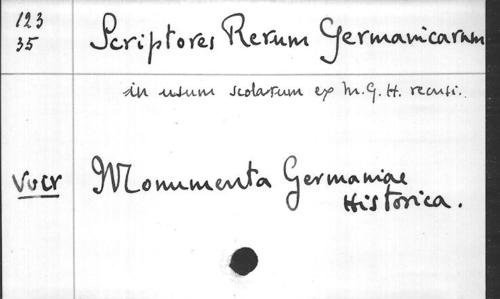 123
35
Scriptores Rerum Germanicarum
in usum scolarum ex M.G.H. recusi.
Monumenta Germaniae
Historica.